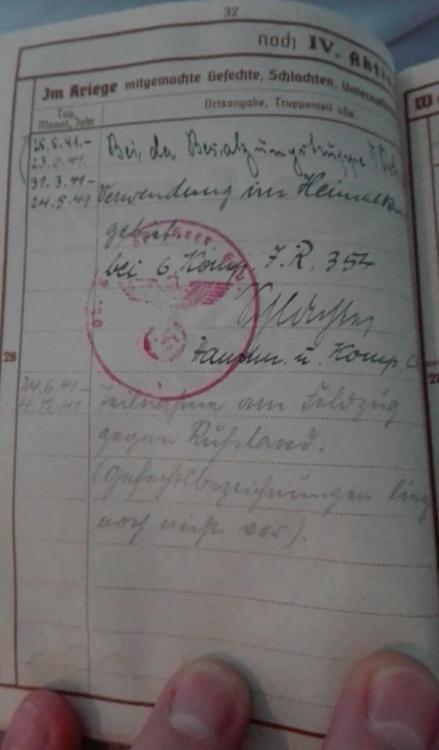 32
noch IV. Akti
Im Kriege mitgemachte Gefechte, Schlachten, Unterneh
W
Tag, Monat, Jahr
Ortsangabe, Truppenteil usw.
Bei der Besatzungstruppe
31.3.41–
24.5.41 Verwendung im Heimatkr
gebiet
bei 6. Komp. J.R. 354
Hauptm. u. Komp.
28
24.6.41–
4.12.41 Teilnahme am Feldzug
gegen Rußland.
(Gefechtsbezeichnungen lieg
noch nicht vor).